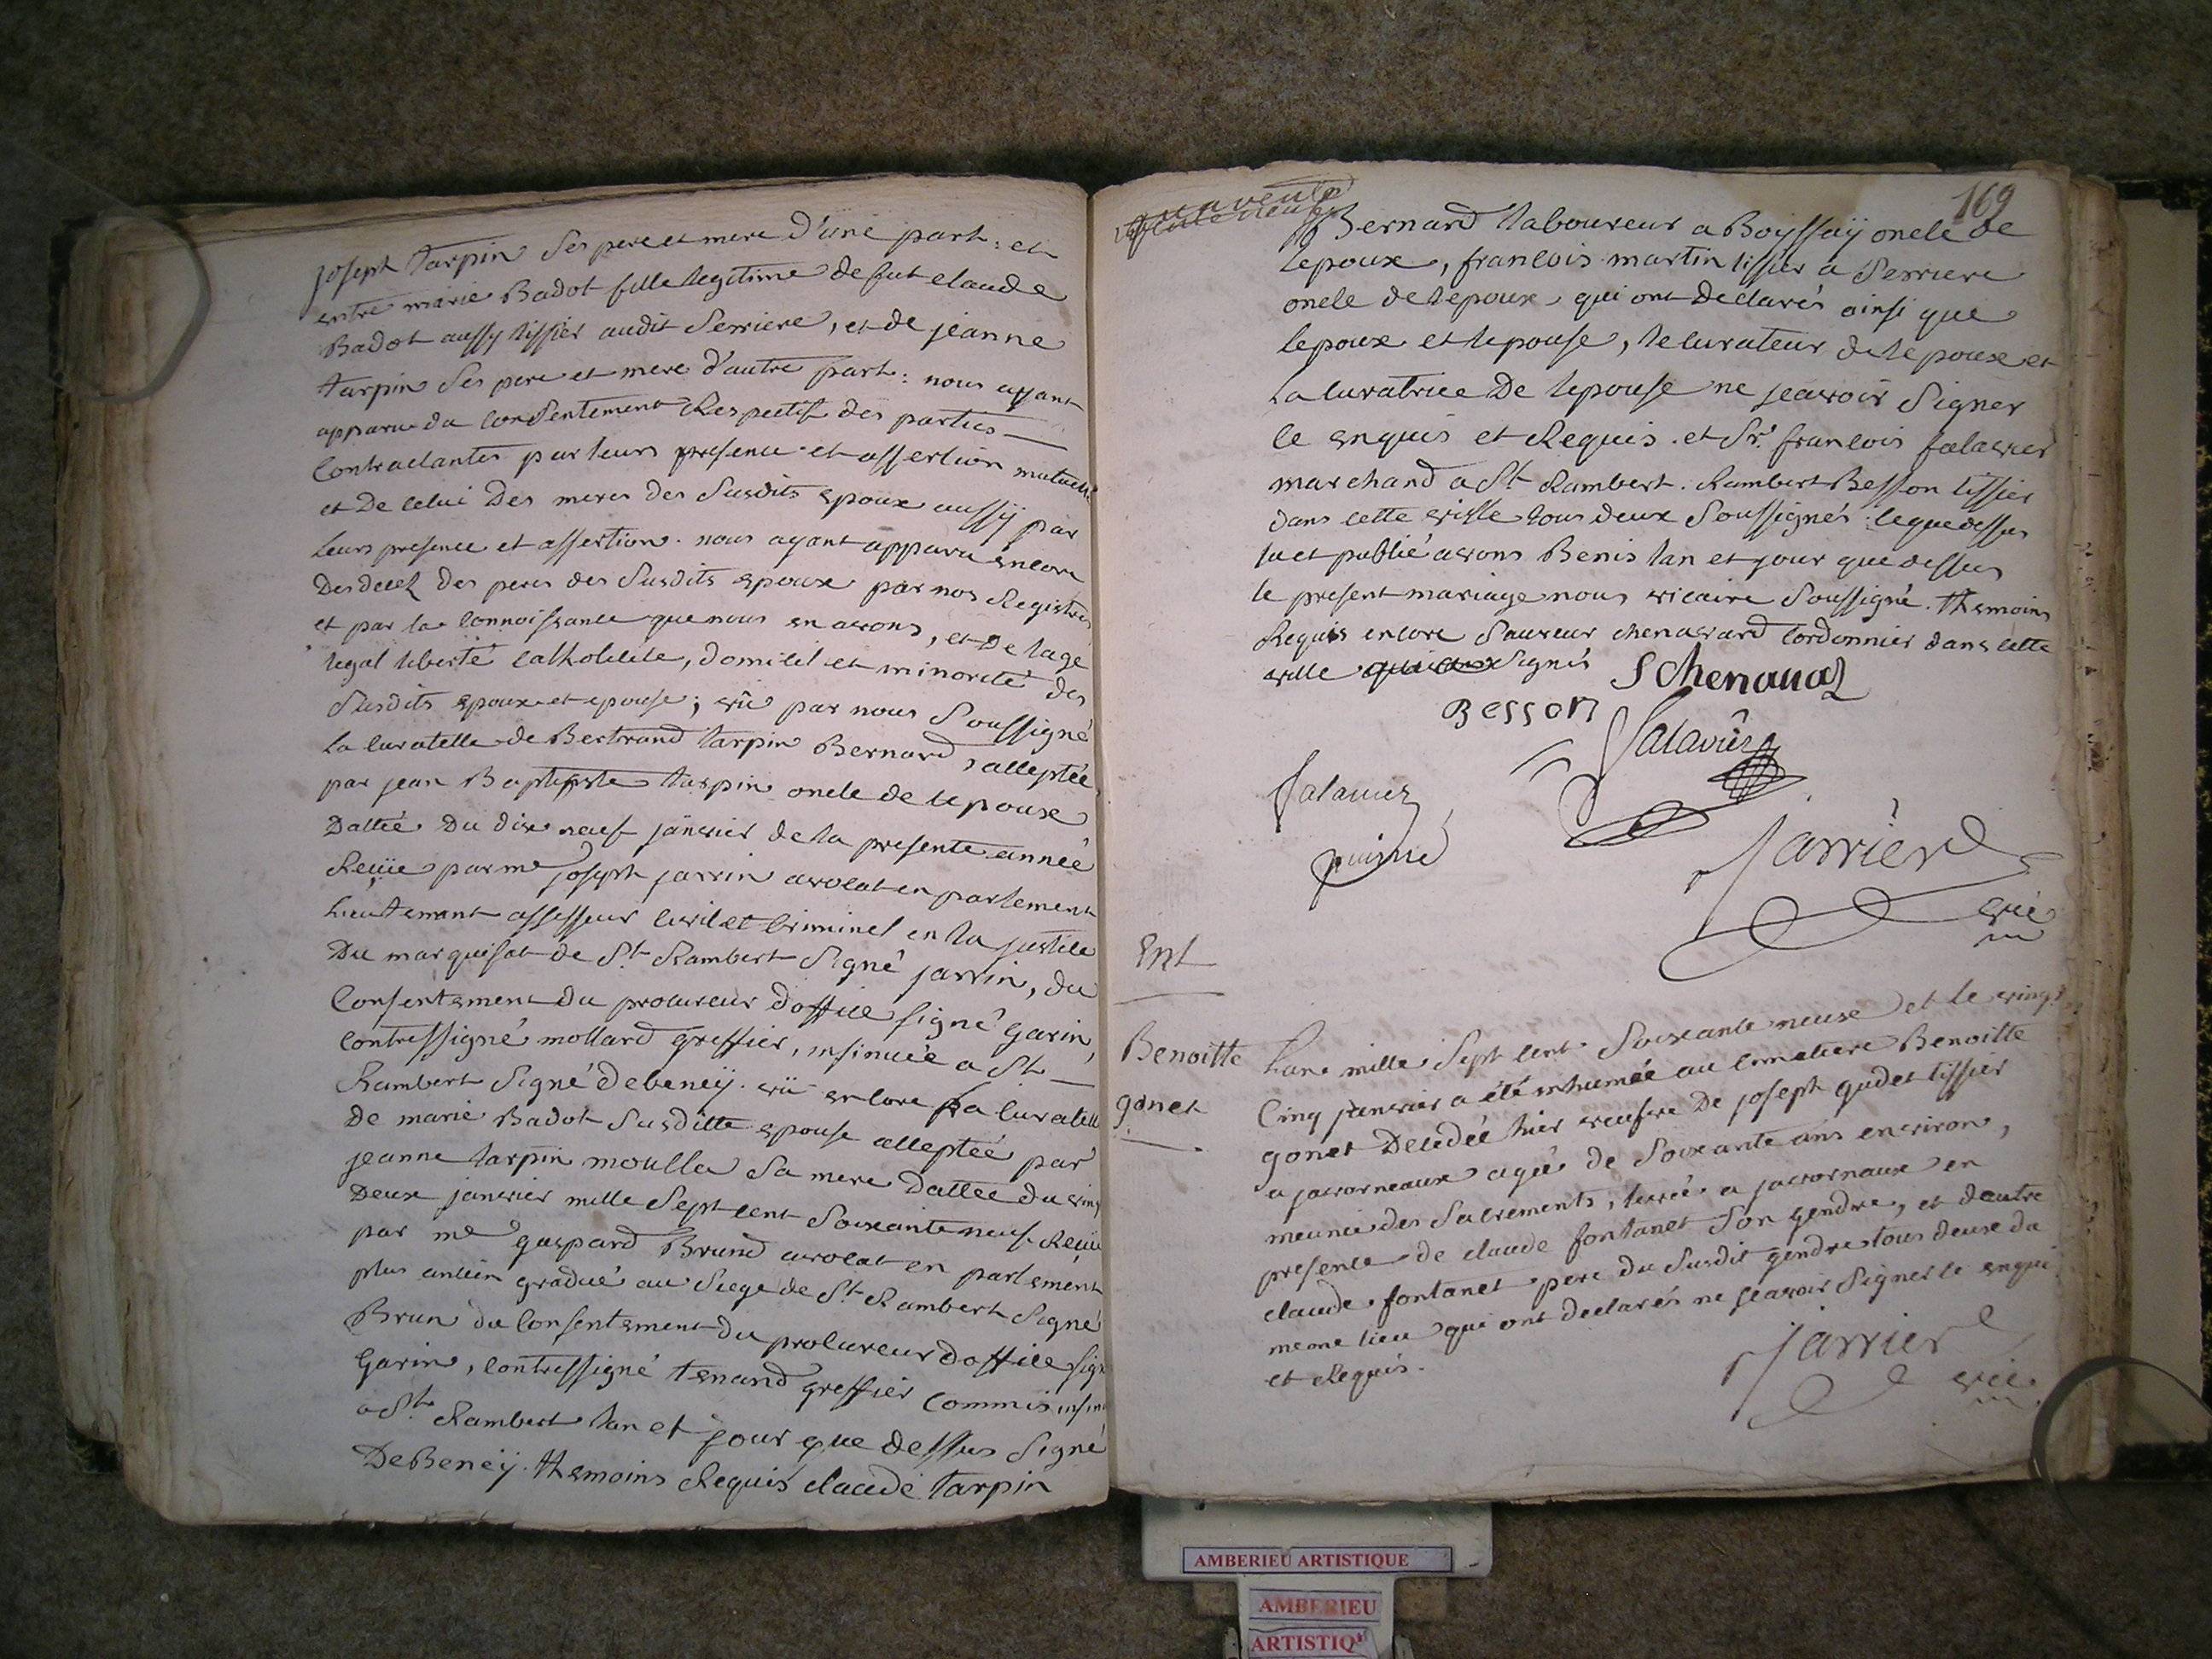 joseph tarpin ses pere et mere d'une part: et
entre marie Badot fille legitime de fut claude
Badot aussy tissier audit Serriere, et de jeanne
tarpin ses pere et mere d'autre part: nous ayant
apparu du consentement Respectif des parties
Contractantes par leurs presence et assertion mutuelle
et De celui Des meres des Susdits epoux aussÿ par
leurs presence et assertion. nous ayant apparu encore
Des decez des peres des Susdits epoux par nos Registres
et par la connoissance que nous en avons, et De lage
legal liberté catholicité, domicil et minorité des
Susdits epoux et epouse; vû par nous Soussigné
la curatelle de Bertrand tarpin Bernard, acceptée
par jean Baptiste tarpin oncle de lepoux
Dattée Du dix neuf janvier de la presente année
Reçüe par me joseph jarrin avocat en parlement
Lieutemant assesseur civil et criminel en la justice
Du marquisat de St Rambert Signé jarrin, du
Consentement du procureur doffice signé Garin,
contressigné mollard greffier, insinuée a St
Rambert Signé debeneÿ. vü encore la curatelle
de marie Badot Susditte epouse acceptée par
jeanne tarpin moulla Sa mere Dattée du vingt
Deux janvier mille Sept cent Soixante neuf Reçüe
par me gaspard Brund avocat en parlement
plus ancien gradué au Siege de St Rambert Signé
Brun du consentement du procureur doffice sign
Garin, contressigné tenand greffier commis insin
a St Rambert lan et jour que dessus Signé
DeBeneÿ. themoins Requis claude tarpin
169
Bernard laboureur a Boyssaÿ oncle de
lepoux, francois martin tissier a Serriere
oncle de lepoux, qui ont Declarés ainsi que
lepoux et lepouse, le curateur de lepoux et
La curatrice De lepouse ne scavoir Signer
le enquis et Requis. et Sr. francois falavier
marchand a St Rambert. Rambert Besson tissier
dans cette ville tous deux Soussignés: le que dessus
lu et publié avons Benis lan et jour que dessus
le present mariage nous vicaire Soussigné. themoins
Requis encore Sauveur chenavard cordonnier dans cette
ville Signés S Chenavaz
Besson
falavier
falavier
puisné
Jarrier
vic
Ent
Benoitte
gonet
Lan mille Sept cent Soixante neuf et le vingt
Cinq janvier a été inhumée au cimetiere Benoitte
gonet Decedée hier veufve De joseph gudet tissier
a javorneaux agée de Soixante ans environ,
meunie des Sacrements, levée a javornaux en
presence de claude fontanet Son gendre, et dautre
claude fontanet pere du Susdit gendre tous deux du
meme lieu qui ont declarés ne scavoir Signer le enquis
et Requis.
Jarrier
vic
AMBERIEU ARTISTIQUE
AMBERIEU
ARTISTIQ